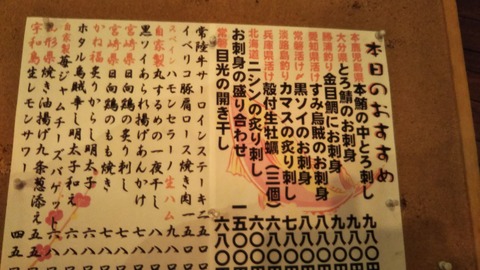 本日のおすすめ
本鹿児島県 本鮪の中とろ刺し 九八〇円
大分県 とろ鯖のお刺身 九八〇円
勝浦釣り 金目鯛にお刺身 九八〇
愛知県活け すみ烏賊のお刺身 八八〇
常磐活〆 黒ソイのお刺身 八八〇
淡路島釣り カマスの炙り刺し 七八〇
兵庫県活け 殻付生牡蠣(三個) 八〇〇
北海道 ニシンの炙り刺し 六八〇
お刺身の盛り合わせ 一五〇〇
常磐 目光の開き干し 六八〇
常陸牛サーロインステーキ 二五〇
イベリコ豚肩ロース焼き肉 一五〇
スペイン ハモンセラーノ 生ハム 八〇
自家製 丸するめの一夜干し 九八
黒ソイあられ揚げあんかけ 八八
宮崎県 日向鶏の炙り刺し 七八
宮崎県 日向鶏のもも焼き 九八
かね福 炙りからし明太子 六八
ホタル烏賊辛し明太子和え 六八
自家製 苺ジャムチーズバゲット 六八
焼き油揚げ九条葱添え 五
宇和島 生レモンサワー 四五